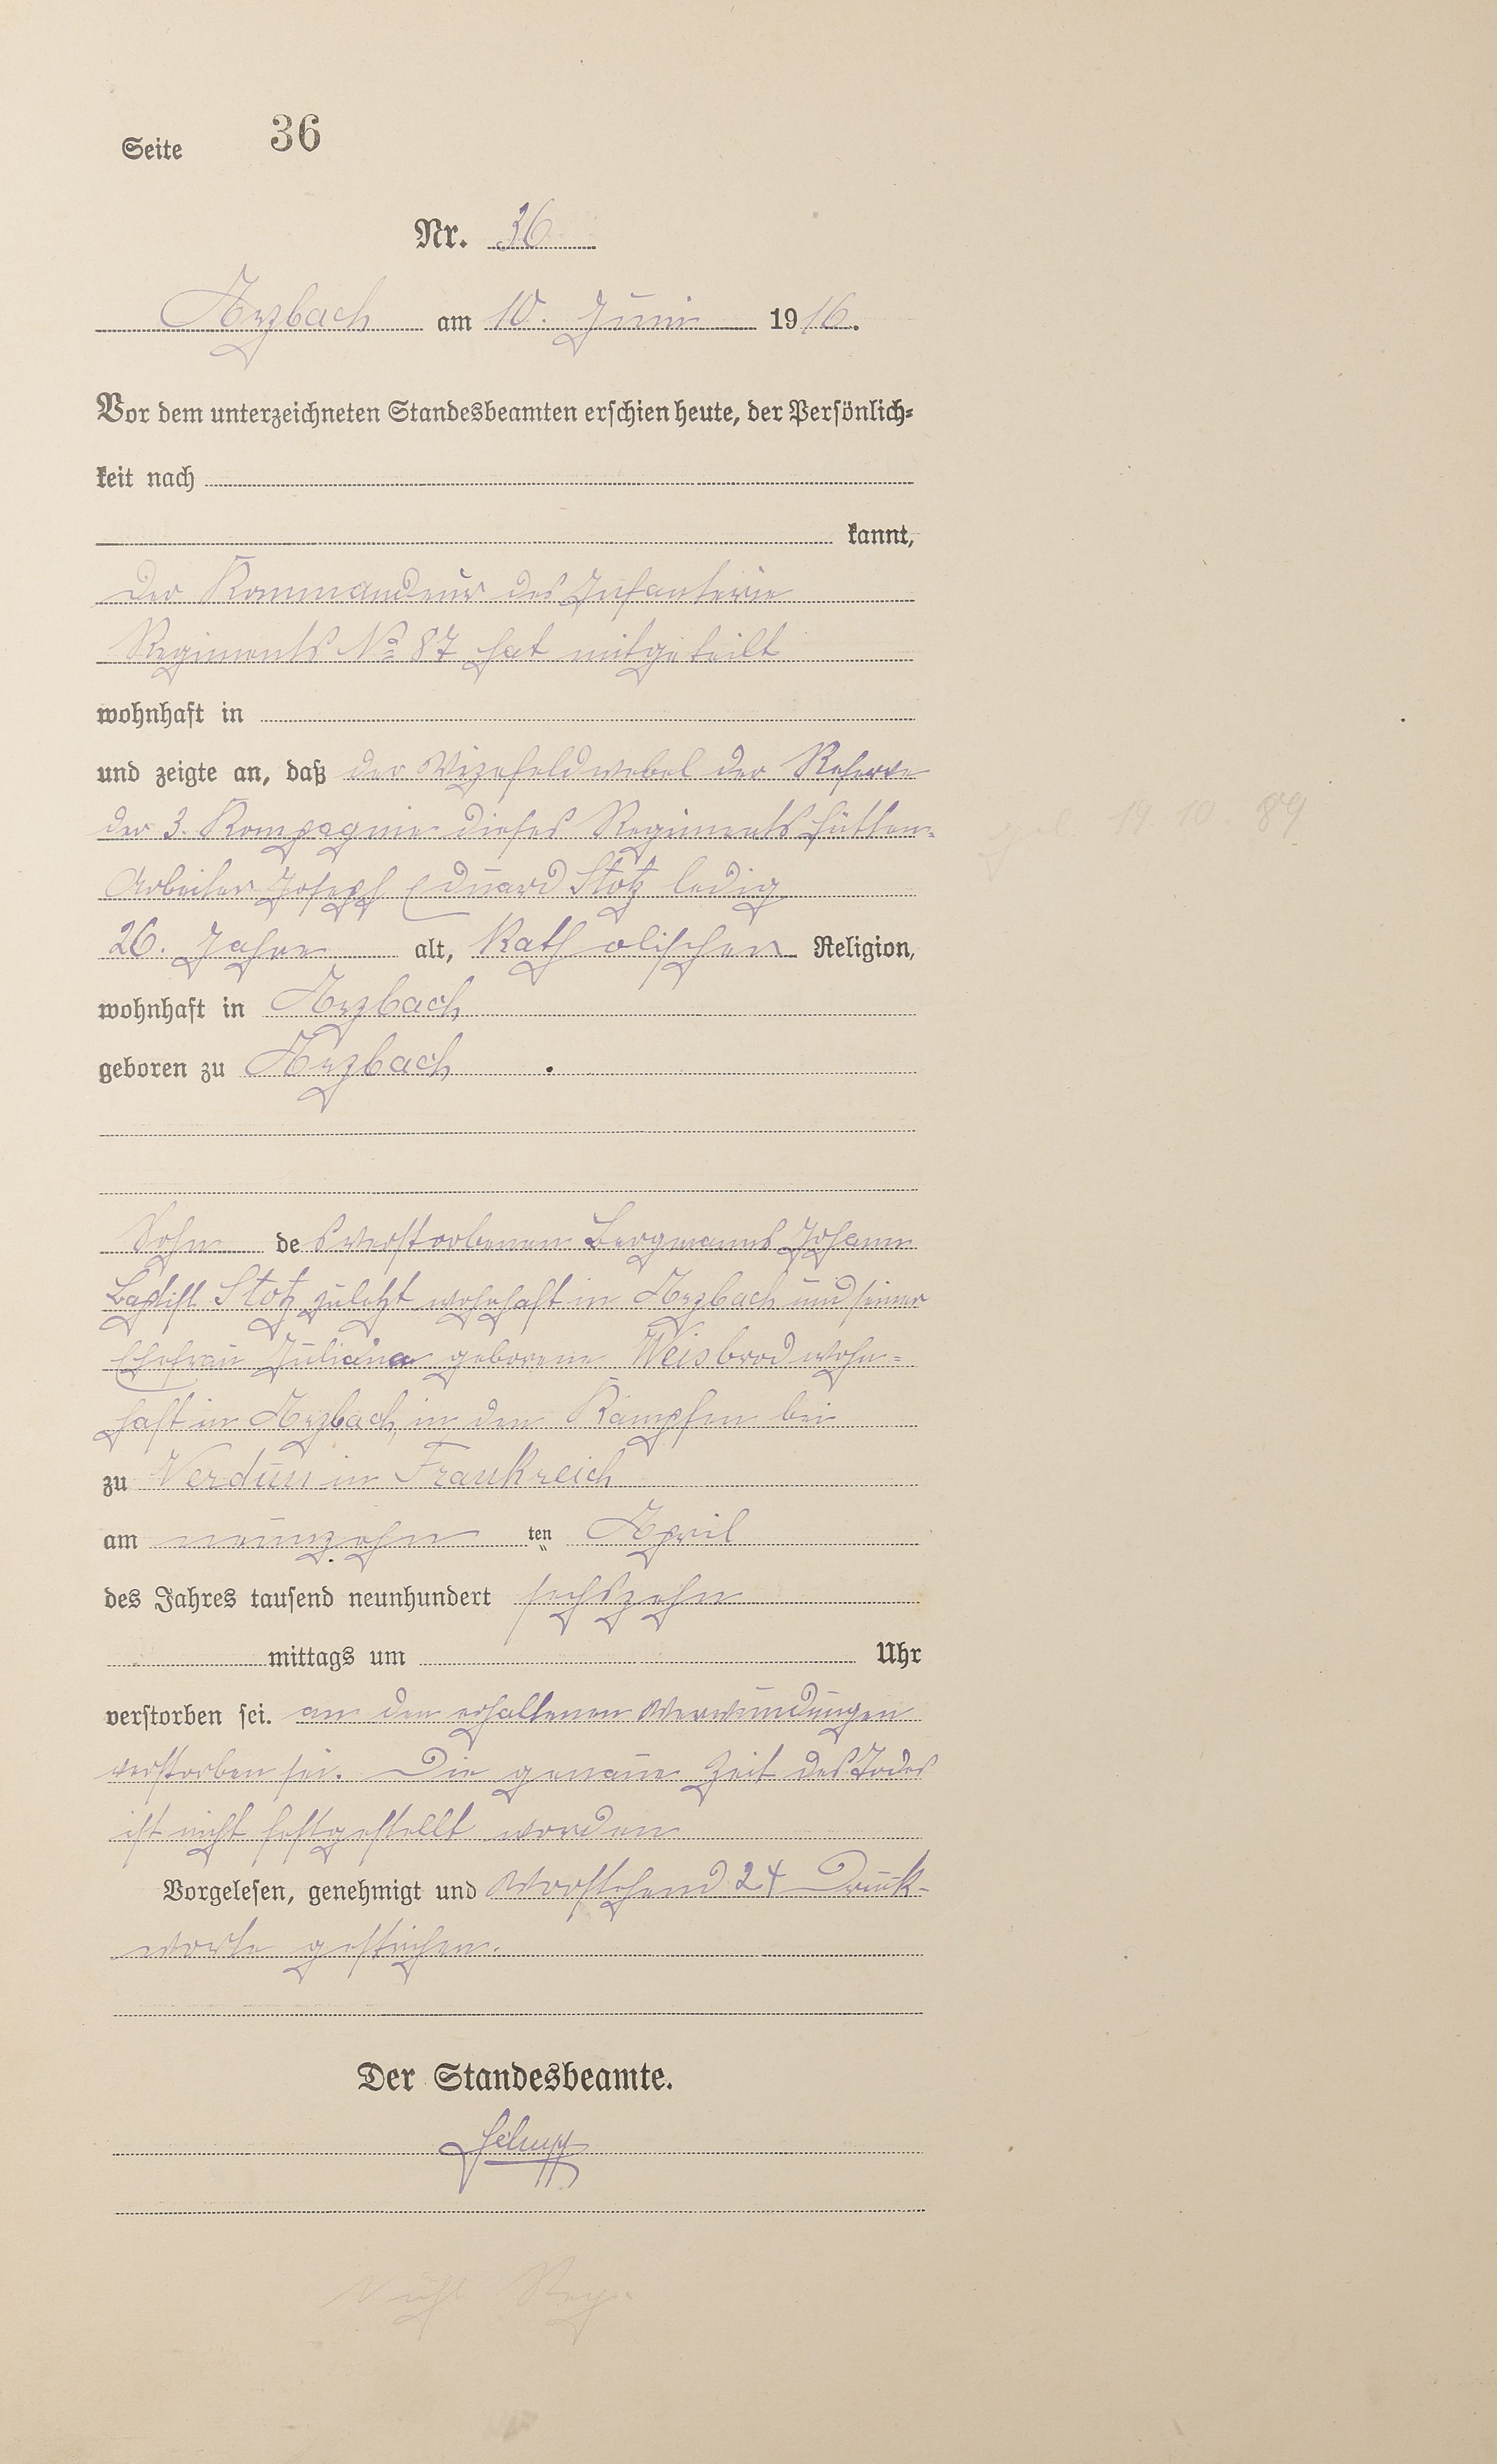 Seite 36
Nr. 36
Arzbach am 10. Juni 1916.
Vor dem unterzeichneten Standesbeamten erschien heute, der Persönlich-
keit nach
kannt,
Der Kommandeur des Infanterie
Regiments No 87 hat mitgeteilt
wohnhaft in
und zeigte an, daß der Vizefeldwebel der Reserve
der 3. Kompagnie dieses Regiments Hütten-
Arbeiter Joseph Eduard Stotz ledig
26. Jahre alt, Katholischer Religion,
wohnhaft in Arzbach
geboren zu Arzbach
Sohn des verstorbenen Bergmanns Johann
Baptist Stotz zuletzt wohnhaft in Arzbach und seiner
Ehefrau Juliana geborene Weisbrod wohn-
haft in Arzbach, in den Kämpfen bei
zu Verdun in Frankreich
am neunzehn ten April
des Jahres tausend neunhundert sechszehn
mittags um Uhr
verstorben sei. an den erhaltenen Verwundungen
verstorben sei. Die genaue Zeit des Todes
ist nicht festgestellt worden
Vorgelesen, genehmigt und Vorstehend 24 Druck-
worte gestrichen.
Der Standesbeamte.
19. 10. 89